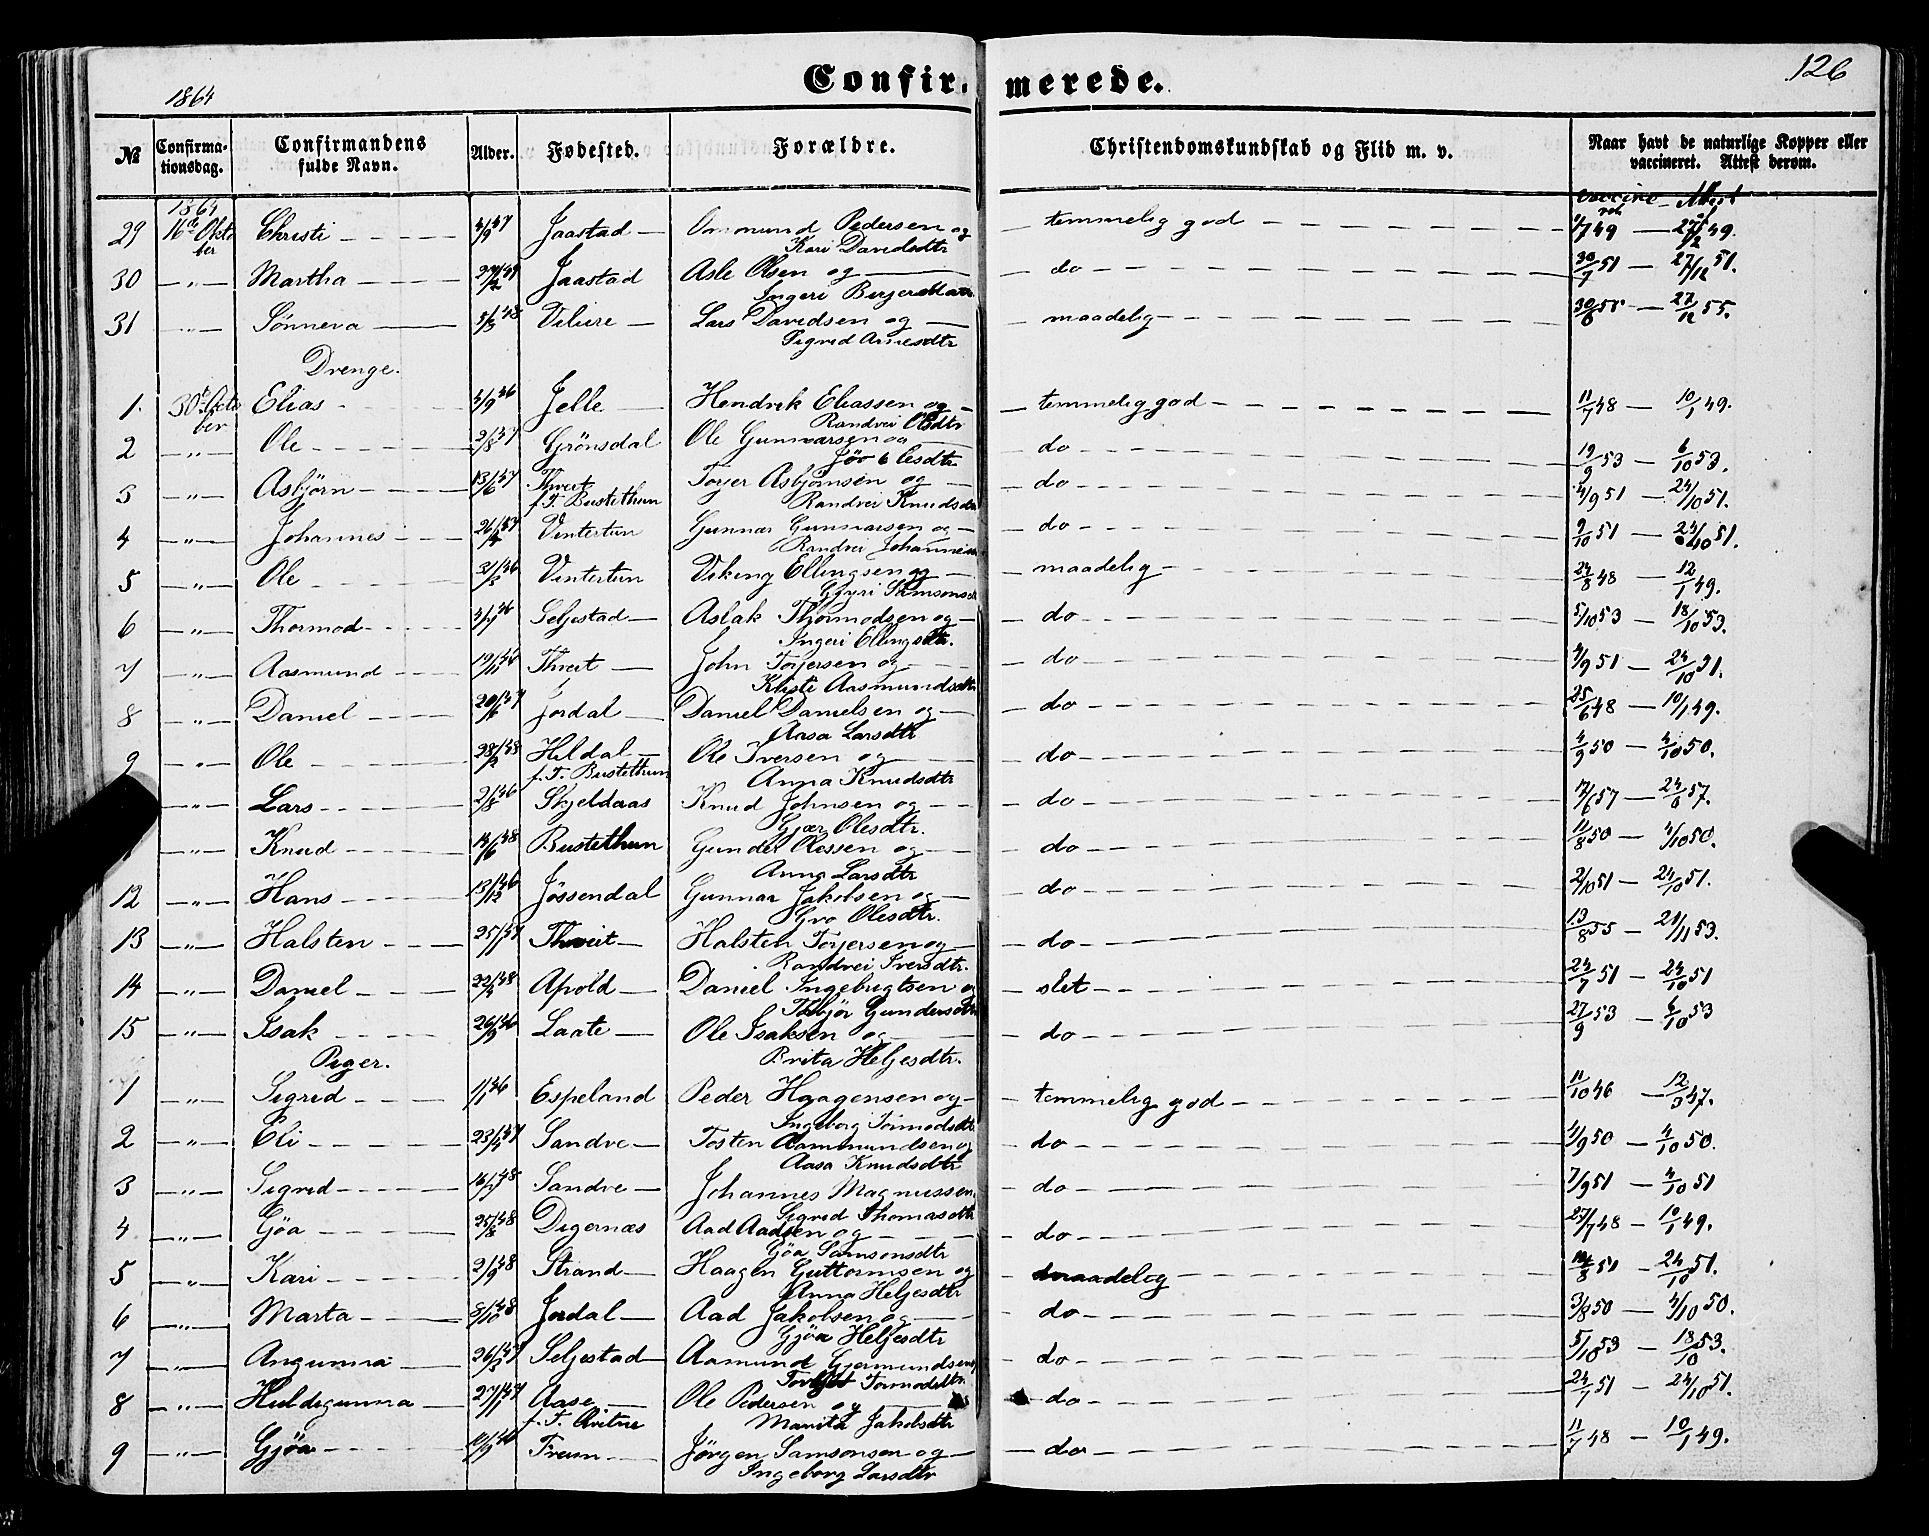 126
1864 Confir. merede.
№ Confirma-tionsdag. Confirmandens fulde Navn. Alder. Fødested. Forældre. Christendomskundskab og Flid m. v. Naar havt de naturlige Kopper eller vaccineret. Attest derom.
1864 vaccine Attest
29 16de Octo ber Christi Jaastad Omund Pedersen og temmelig god 1/7 49 27/12 49.
Kari Davidsdtr
30 " Martha 27/2 49 Jaastad Asle Olsen og do 30/7 51 27/12 51.
Ingeri
31 " Sønneva 5/3 48 Vilure Lars Davidsen og maadelig 27/12 55.
Sigrid Arnesdtr
Drenge.
1. 30te Octo ber Elias 4/9 46 Jelle Hendrik Eliassen og temmelig god 11/7 48 10/1 49.
Randvei Olsdtr
2 " Ole 2/8 47 Grönsdal Ole Gunnarsen og do 19/9 53 6/10 53.
3 " Asbjörn 13/6 47 Thveit Torjer Asbjörnsen og do 4/9 51 24/10 51.
f. T. Bustethun Randvei Knudsdtr
4 " Johannes 26/4 47 Vintertun Gunnar Gunnarsen og do 9/10 51 24/10 51.
Randvei
5 " Ole 31/3 46 Vintertun Viking Ellingsen og maadelig 24/8 48 12/1 49.
Gjyri
6 " Thormod Seljestad Aslak Thormodsen og do 5/10 53 18/10 53.
Ingeri Ellingsdtr.
7 " Aasmund Thveit John Torjersen og do 4/9 51 24/10 51.
Kristi Aasmundsdtr
8 " Daniel 20/6 47 Jordal Daniel Danielsen og do 25/6 48 10/1 49.
Aasa Larsdtr
9 " Ole 28/2 48 Hildal Ole Iversen og do 4/9 50 4/10 50.
f. T. Bustethun Anna Knudsdtr
" Lars 2/8 46 Skjeldaas Knud Johnsen og do 17/6 57 24/6 57.
Gjær Olesdtr.
" Knud 14/6 48 Bustethun Gunder Olessen og do 11/8 50 4/10 50.
Anna Larsdtr
12 " Hans 13/12 46 Jössendal Gunnar Jakobsen og do 2/10 51 24/10 51.
Gro Olesdtr.
13 " Halsten 25/1 47 Thveit Halsten Torjersen og do 13/8 55 21/11 53.
Randvei Iversdtr.
14 " Daniel 22/4 48 Apold Daniel Ingebrigtsen og slet 24/7 51 24/10 51
Gundersdtr
15 " Isak 26/9 46 Laate Ole Isaksen og do 27/9 53 6/10 53
Brita Heljesdtr.
Piger.
1 " Sigrid 1/1 46 Espeland Peder Haagensen og temmelig god 11/10 46 12/3 47.
Ingeborg Tormodsdtr
2 " Eli 23/4 47 Sandve Tosten Aammundsen og do 4/9 50 4/10 50.
Aasa Knudsdtr
3 " Sigrid 16/7 48 Sandve Johannes Magnussen do 7/9 51 4/10 51
Sigrid Thomasdtr
4 " Gjöa 25/8 48 Digernæs Aad Aadsen og do 27/7 48 10/1 49.
Gjöa Samsonsdtr
5 " Kari 2/9 48 Strand Haagen Guttormsen og maadelig 14/8 51 24/10 51.
Anna Heljesdtr
6 " Marta 8/10 48 Jordal Aad Jakobsen og do 3/8 50 4/10 50.
Gjöa Heljesdtr
7 " Angunna 26/3 47 Seljestad Aamund Gjermundsen do 5/10 53 18/10 53.
Tormodsdtr
8 " Huldegunna 27/1 47 Aase Ole Pedersen og do 24/7 51 24/10 51.
f. T. Marita Jakobsdtr
9 " Gjöa 10/9 46 Freim Jörgen Samsonsen og do 11/7 48 10/1 49.
Ingeborg Larsdtr